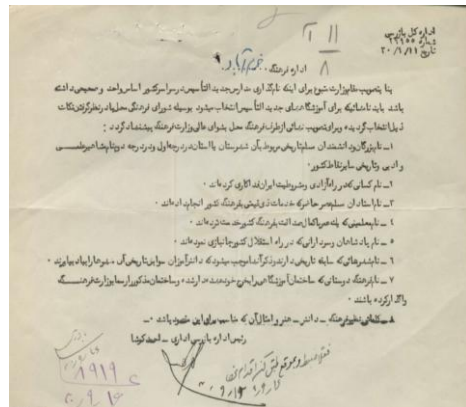 اداره کل بازرسی
شماره ۲۳۶۵۵
تاریخ ۲۰/۶/۱۱
اداره فرهنگ خرم آباد
بنا بتصویب مقام وزارت متبوع برای اینکه نامگذاری مدارس جدید التأسیس در سراسر کشور اساس واحد و صحیحی داشته
باشد باید نامهائیکه برای آموزشگاههای جدید التأسیس انتخاب میشود بوسیله شورای فرهنگی محلی با در نظر گرفتن نکات
ذیل انتخاب گردیده و برای تصویب نهائی از طرف فرهنگ محل بشورای عالی وزارت فرهنگ پیشنهاد گردد :
۱ـ نام بزرگان و دانشمندان مسلم تاریخی مربوط بآن شهرستان یا استان در درجه اول و در درجه دوم نام مشاهیر علمی
و ادبی و تاریخی سایر نقاط کشور ۰
۲ـ نام کسانیکه در راه آزادی و مشروطیت ایران فداکاری کرده اند ۰
۳ـ نام استادان مسلم عصر حاضر که خدمات ذی قیمتی بفرهنگ کشور انجام داده اند ۰
۴ ـ نام معلمینی که با کمال صداقت بفرهنگ کشور خدمت کرده اند ۰
۵ ـ نام پادشاهان و سردارانی که در راه استقلال کشور جانبازی نموده اند ۰
۶ـ نام شهرهائی که سابقه تاریخی دارند و ذکر آنها موجب میشود که دانش آموزان سوابق تاریخی آن شهرها را بیاد بیاورند ۰
۷ ـ نام فرهنگ دوستانی که ساختمان آموزشگاهی را بخرج خود عهده دار شده و ساختمان مذکور را رسما بوزارت فرهنگ
واگذار کرده باشند ۰
۸ ـ کلماتی نظیر فرهنگ ـ دانش ـ هنر و امثال آن که مناسب برای این مقصود باشد ۰
رئیس اداره بازرسی اداری ـ احمد کوشا